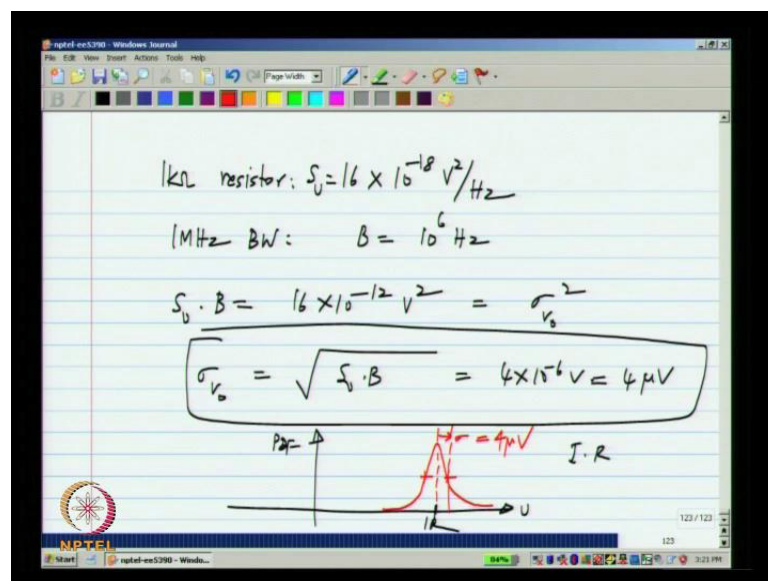 nptel-ee5390 - Windows Journal
File Edit View Insert Actions Tools Help
Page Width
B I
1kΩ resistor: Sᵥ = 16 × 10⁻¹⁸ V²/Hz
1MHz BW: B = 10⁶ Hz
Sᵥ · B = 16 × 10⁻¹² V² = σᵥₒ²
σᵥₒ = √(Sᵥ · B) = 4×10⁻⁶ V = 4 μV
PDF
σ = 4μV
I · R
IR
v
123 / 123
123
NPTEL
Start
nptel-ee5390 - Windo...
84%
3:21 PM